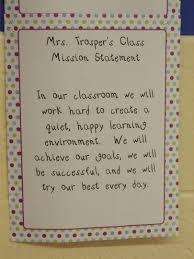 Mrs. Trasper's Class
Mission Statement
In our classroom we will
work hard to create a
quiet, happy learning
environment. We will
achieve our goals, we will
be successful, and we will
try our best every day.